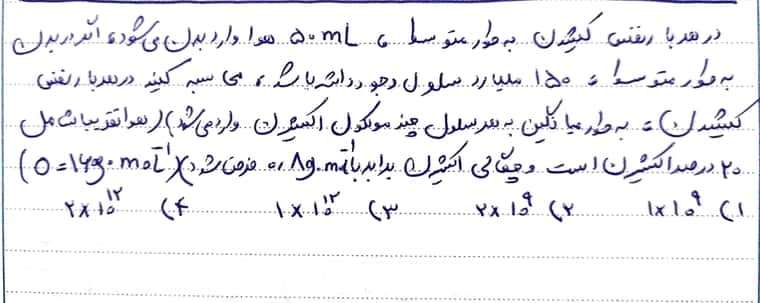 در هر بار نفس کشیدن به طور متوسط ، ۵۰۰ mL هوا وارد بدن می شود، اگر در بدن
به طور متوسط ، ۱۵۰ میلیارد سلول وجود داشته باشد ، محاسبه کنید در هر بار نفس
کشیدن ، به طور میانگین به هر سلول چند مولکول اکسیژن وارد می شود) (هوا تقریبا شامل
۲۰ درصد اکسیژن است و چگالی اکسیژن برابر با ۸g.ml⁻¹ ، فرض شود) (O=16g.mol⁻¹)
۱) ۱×۱۰⁹ ۲) ۲×۱۰⁹ ۳) ۱×۱۰¹² ۴) ۲×۱۰¹²